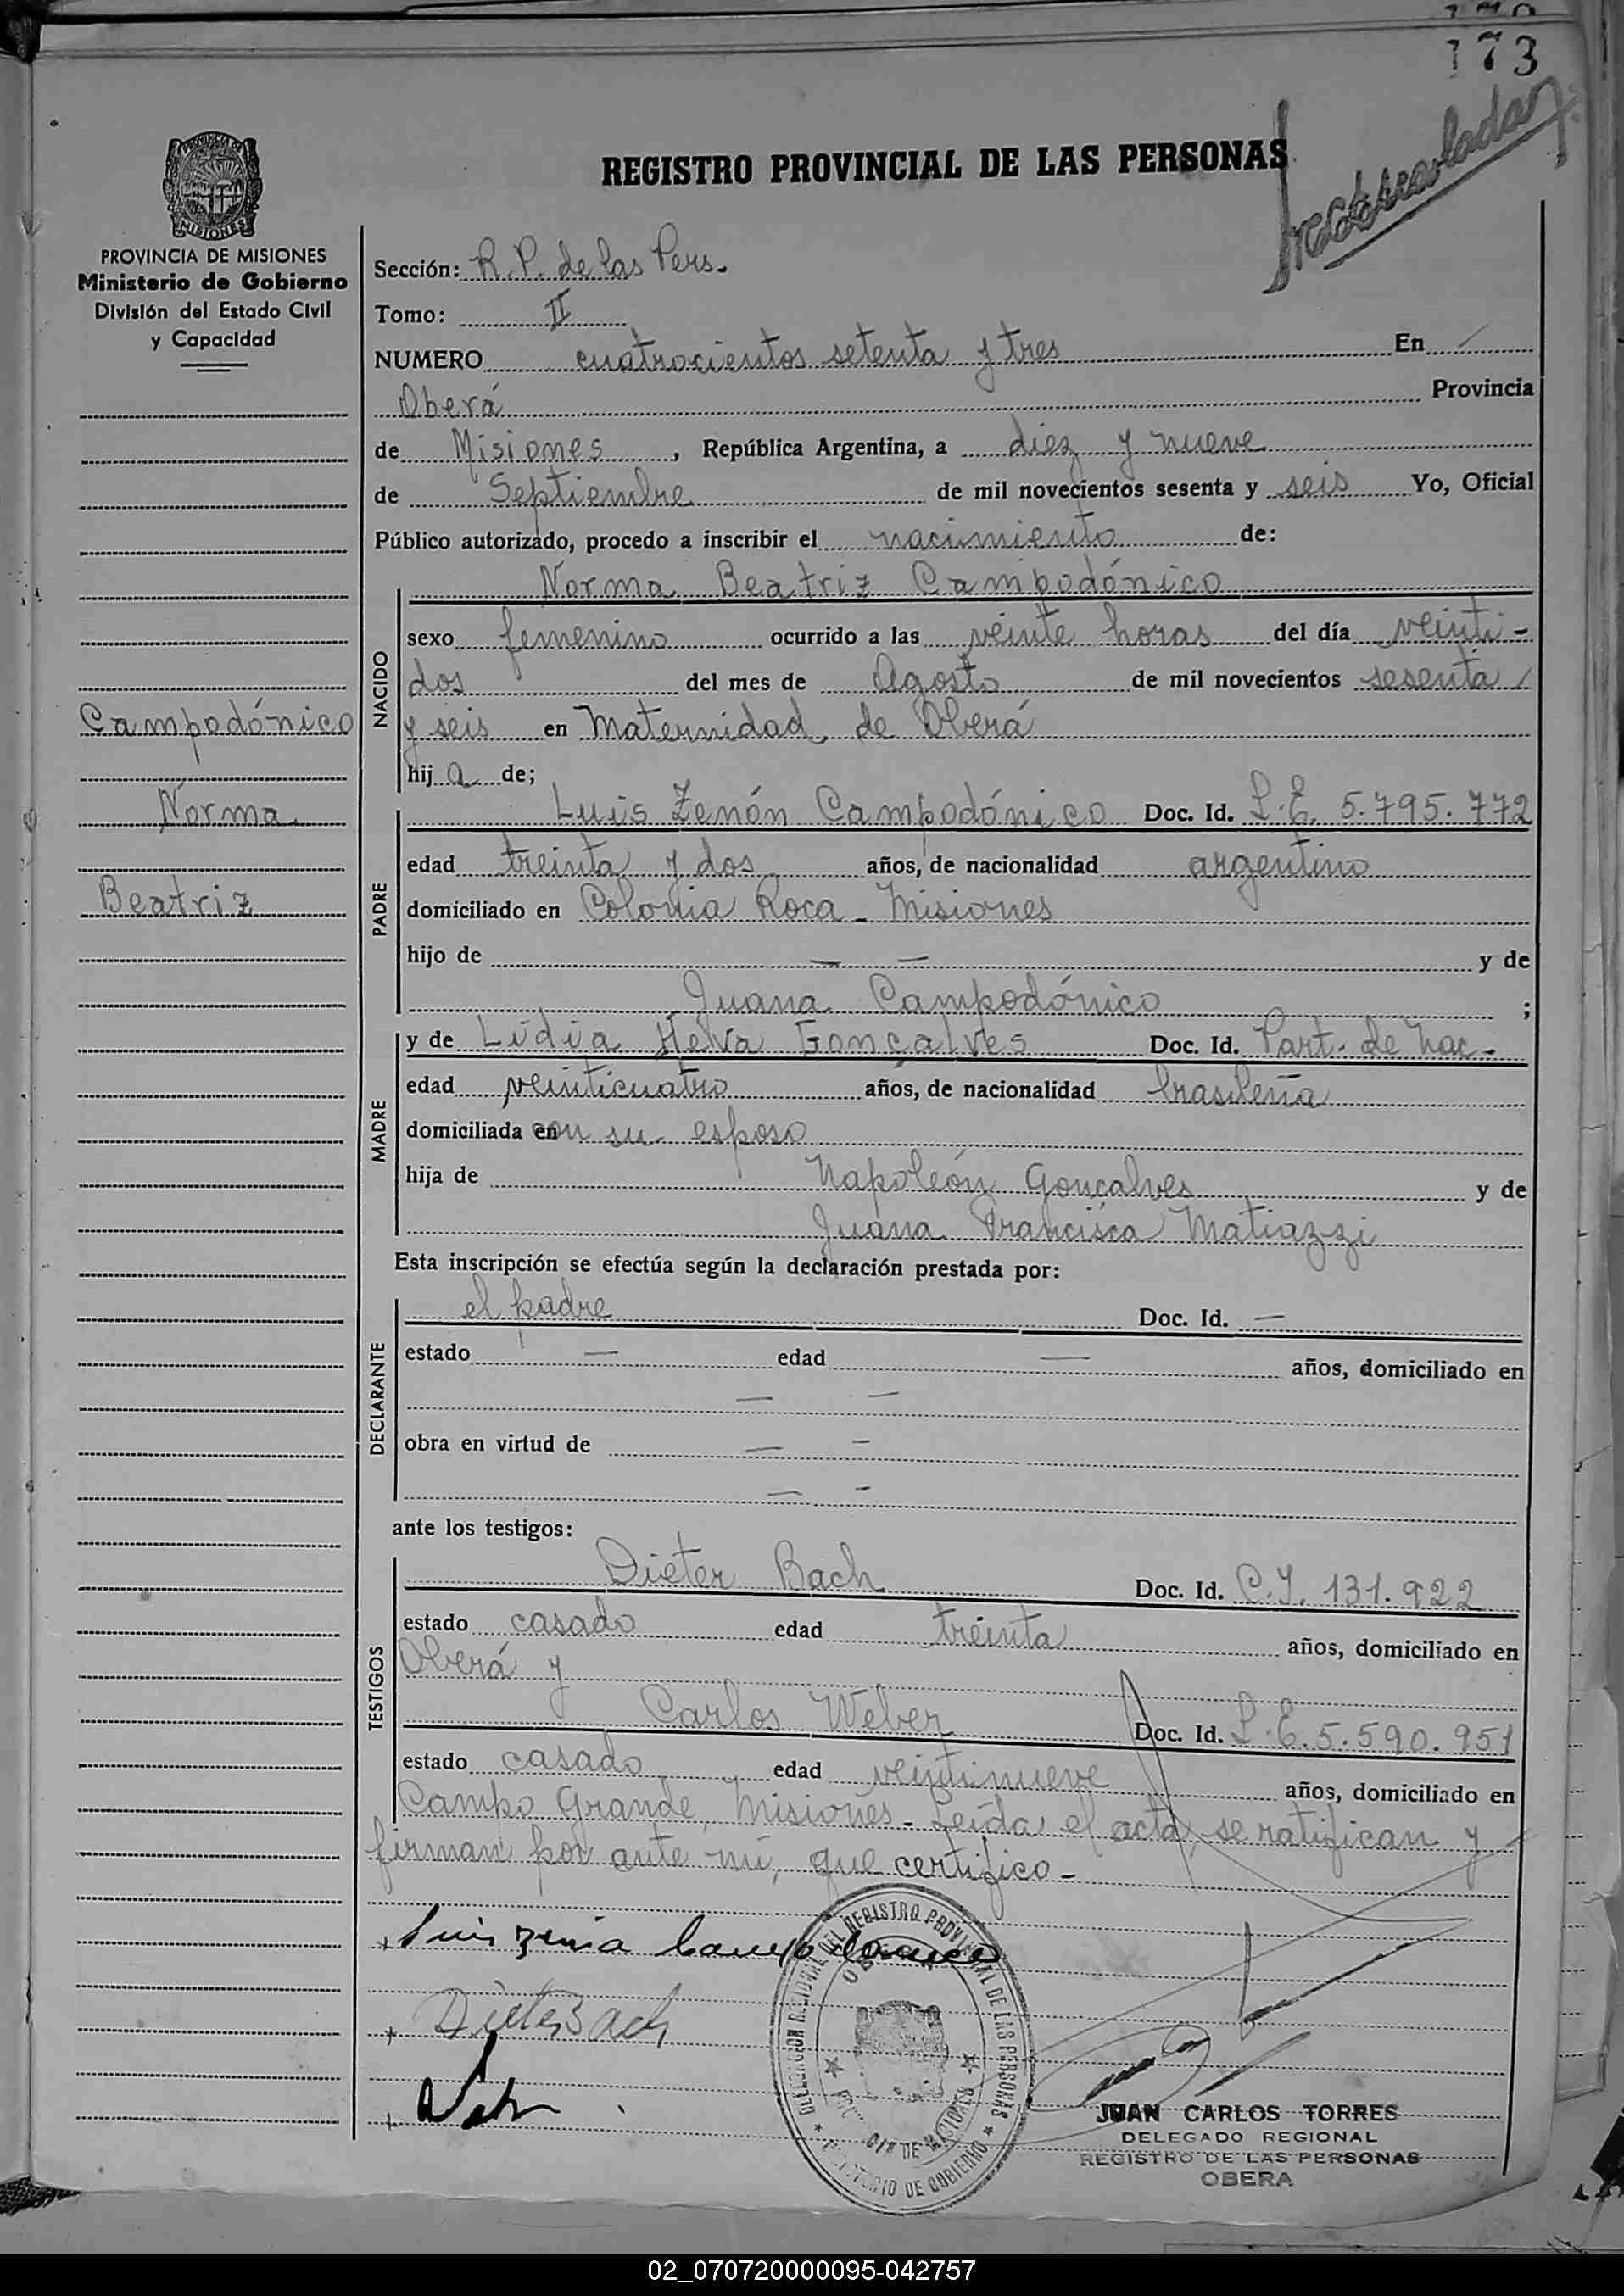 173
Matriculada
REGISTRO PROVINCIAL DE LAS PERSONAS
PROVINCIA DE MISIONES
Ministerio de Gobierno
División del Estado Civil
y Capacidad
Campodónico
Norma
Beatriz
Sección: R. P. de las Pers.
Tomo: II
NUMERO cuatrocientos setenta y tres En /
Oberá Provincia
de Misiones, República Argentina, a diez y nueve
de Septiembre de mil novecientos sesenta y seis Yo, Oficial
Público autorizado, procedo a inscribir el nacimiento de:
NACIDO
Norma Beatriz Campodónico
sexo femenino ocurrido a las veinte horas del día veinti-
dos del mes de Agosto de mil novecientos sesenta /
y seis en Maternidad de Oberá
hija de;
PADRE
Luis Zenón Campodónico Doc. Id. L.E. 5.795.772
edad treinta y dos años, de nacionalidad argentino
domiciliado en Colonia Roca - Misiones
hijo de — — y de
Juana Campodónico ;
MADRE
y de Lidia Helva Gonçalves Doc. Id. Part. de Nac.
edad veinticuatro años, de nacionalidad brasileña
domiciliada en con su esposo
hija de Napoleón Gonçalves y de
Juana Francisca Matiazzi
Esta inscripción se efectúa según la declaración prestada por:
DECLARANTE
el padre Doc. Id. —
estado — edad — años, domiciliado en
— —
obra en virtud de — —
— —
ante los testigos:
TESTIGOS
Dieter Bach Doc. Id. C.I. 131.922
estado casado edad treinta años, domiciliado en
Oberá y
Carlos Weber Doc. Id. L.E. 5.590.951
estado casado edad veintinueve años, domiciliado en
Campo Grande, Misiones - Leída el acta, se ratifican y
firman por ante mí, que certifico -
Dieter Bach
DELEGACION REGIONAL DEL REGISTRO PROVINCIAL DE LAS PERSONAS
MINISTERIO DE GOBIERNO
JUAN CARLOS TORRES
DELEGADO REGIONAL
REGISTRO DE LAS PERSONAS
OBERA
02_070720000095-042757